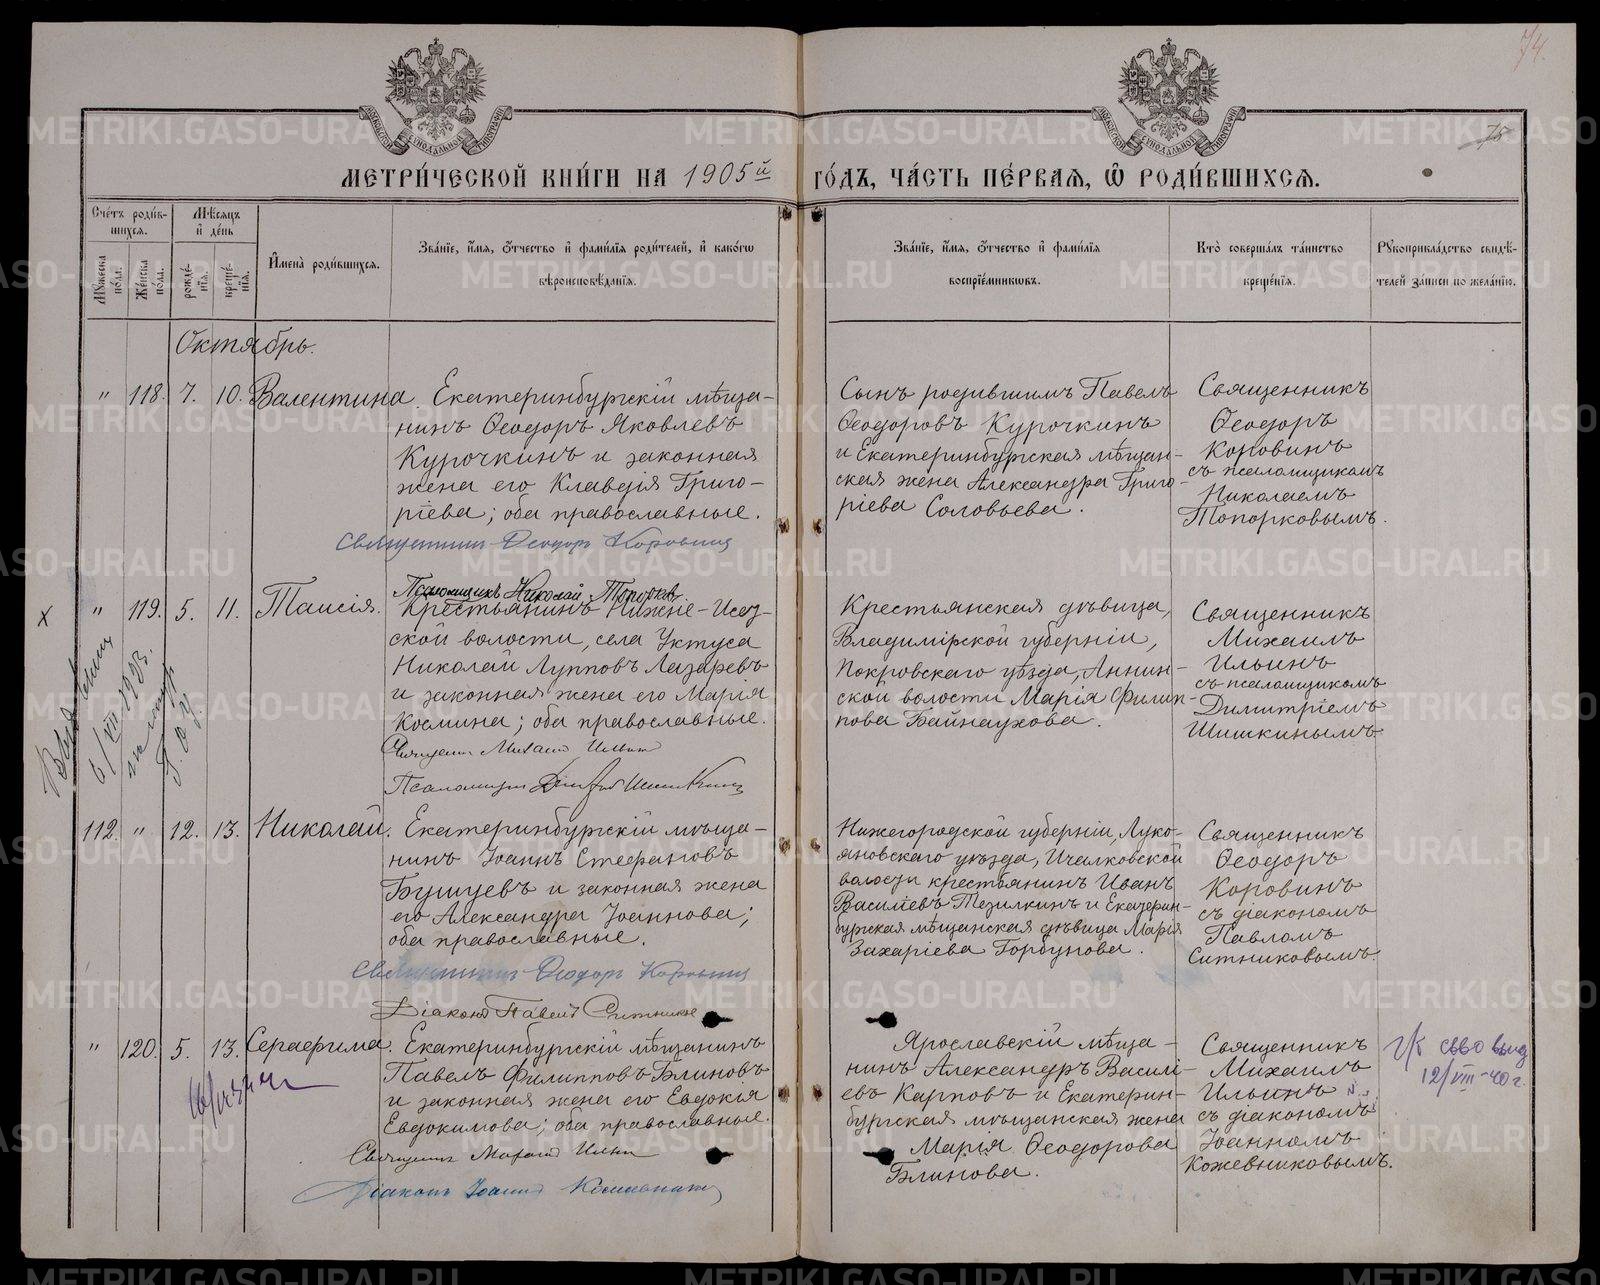 74.
75
МЕТРИ́ЧЕСКОЙ КНИ́ГИ НА 1905й ГО́ДЪ, ЧА́СТЬ ПЕ́РВАЯ, Ѿ РОДИ́ВШИХСЯ.
Сче́тъ роди́в-
шихся.
Мꙋ́жеска по́ла.
Же́нска по́ла.
Мѣ́сяцъ и де́нь
рожде́-
нїя.
креще́-
нїя.
Имена̀ роди́вшихся.
Зва́нїе, и́мя, ѻ́тчество и фами́лїя роди́телей, и како́гѡ
вѣроисповѣ́данїя.
Зва́нїе, и́мя, ѻ́тчество и фами́лїя
воспрїе́мникѡвъ.
Кто̀ соверша́лъ та́инство
креще́нїя.
Рꙋкоприкла́дство свидѣ́-
телей за́писи по жела́нїю.
Октябрь.
" 118. 7. 10. Валентина
Екатеринбургскій мѣща-
нинъ Ѳеодоръ Яковлевъ
Курочкинъ и законная
жена его Клавдія Григо-
ріева; оба православные.
Священникъ Ѳеодоръ Коровинъ
Псаломщикъ Николай Топорков
Сынъ родившимъ Павелъ
Ѳеодоровъ Курочкинъ
и Екатеринбургская мѣщан-
ская жена Александра Григо-
ріева Соловьева.
Священникъ
Ѳеодоръ
Коровинъ
съ псаломщикомъ
Николаемъ
Топорковымъ.
х " 119. 5. 11. Таисія.
Крестьянинъ Нижне-Исет-
ской волости, села Уктуса
Николай Лупповъ Лазаревъ
и законная жена его Марія
Космина; оба православные.
Священникъ Михаил Ильин
Псаломщикъ Шишкинъ
6/VII 1935.
Крестьянская дѣвица,
Владимірской губерніи,
Покровскаго уѣзда, Аннин-
ской волости Марія Филип-
пова Байнаухова.
Священникъ
Михаилъ
Ильинъ
съ псаломщикомъ
Димитріемъ
Шишкинымъ
112. " 12. 13. Николай.
Екатеринбургскій мѣща-
нинъ Іоаннъ Стефановъ
Бушуевъ и законная жена
его Александра Іоаннова;
оба православные.
Священникъ Ѳеодоръ Коровинъ
Діаконъ Павелъ Ситников
Нижегородской губерніи, Луко-
яновскаго уѣзда, Ичалковской
волости крестьянинъ Иванъ
Василіевъ Тезилкинъ и Екатерин-
бургская мѣщанская дѣвица Марія
Захаріева Горбунова.
Священникъ
Ѳеодоръ
Коровинъ
съ діакономъ
Павломъ
Ситниковымъ.
" 120. 5. 13. Серафима.
Екатеринбургскій мѣщанинъ
Павелъ Филипповъ Блиновъ
и законная жена его Евдокія
Евдокимова; оба православные.
Священникъ Михаил Ильин
Діаконъ Іоаннъ Кожевниковъ
Ярославскій мѣща-
нинъ Александръ Василі-
евъ Карповъ и Екатерин-
бургская мѣщанская жена
Марія Ѳеодорова
Блинова.
Священникъ
Михаилъ
Ильинъ
съ діакономъ
Іоанномъ
Кожевниковымъ.
св-во выд
12/VIII-40 г.